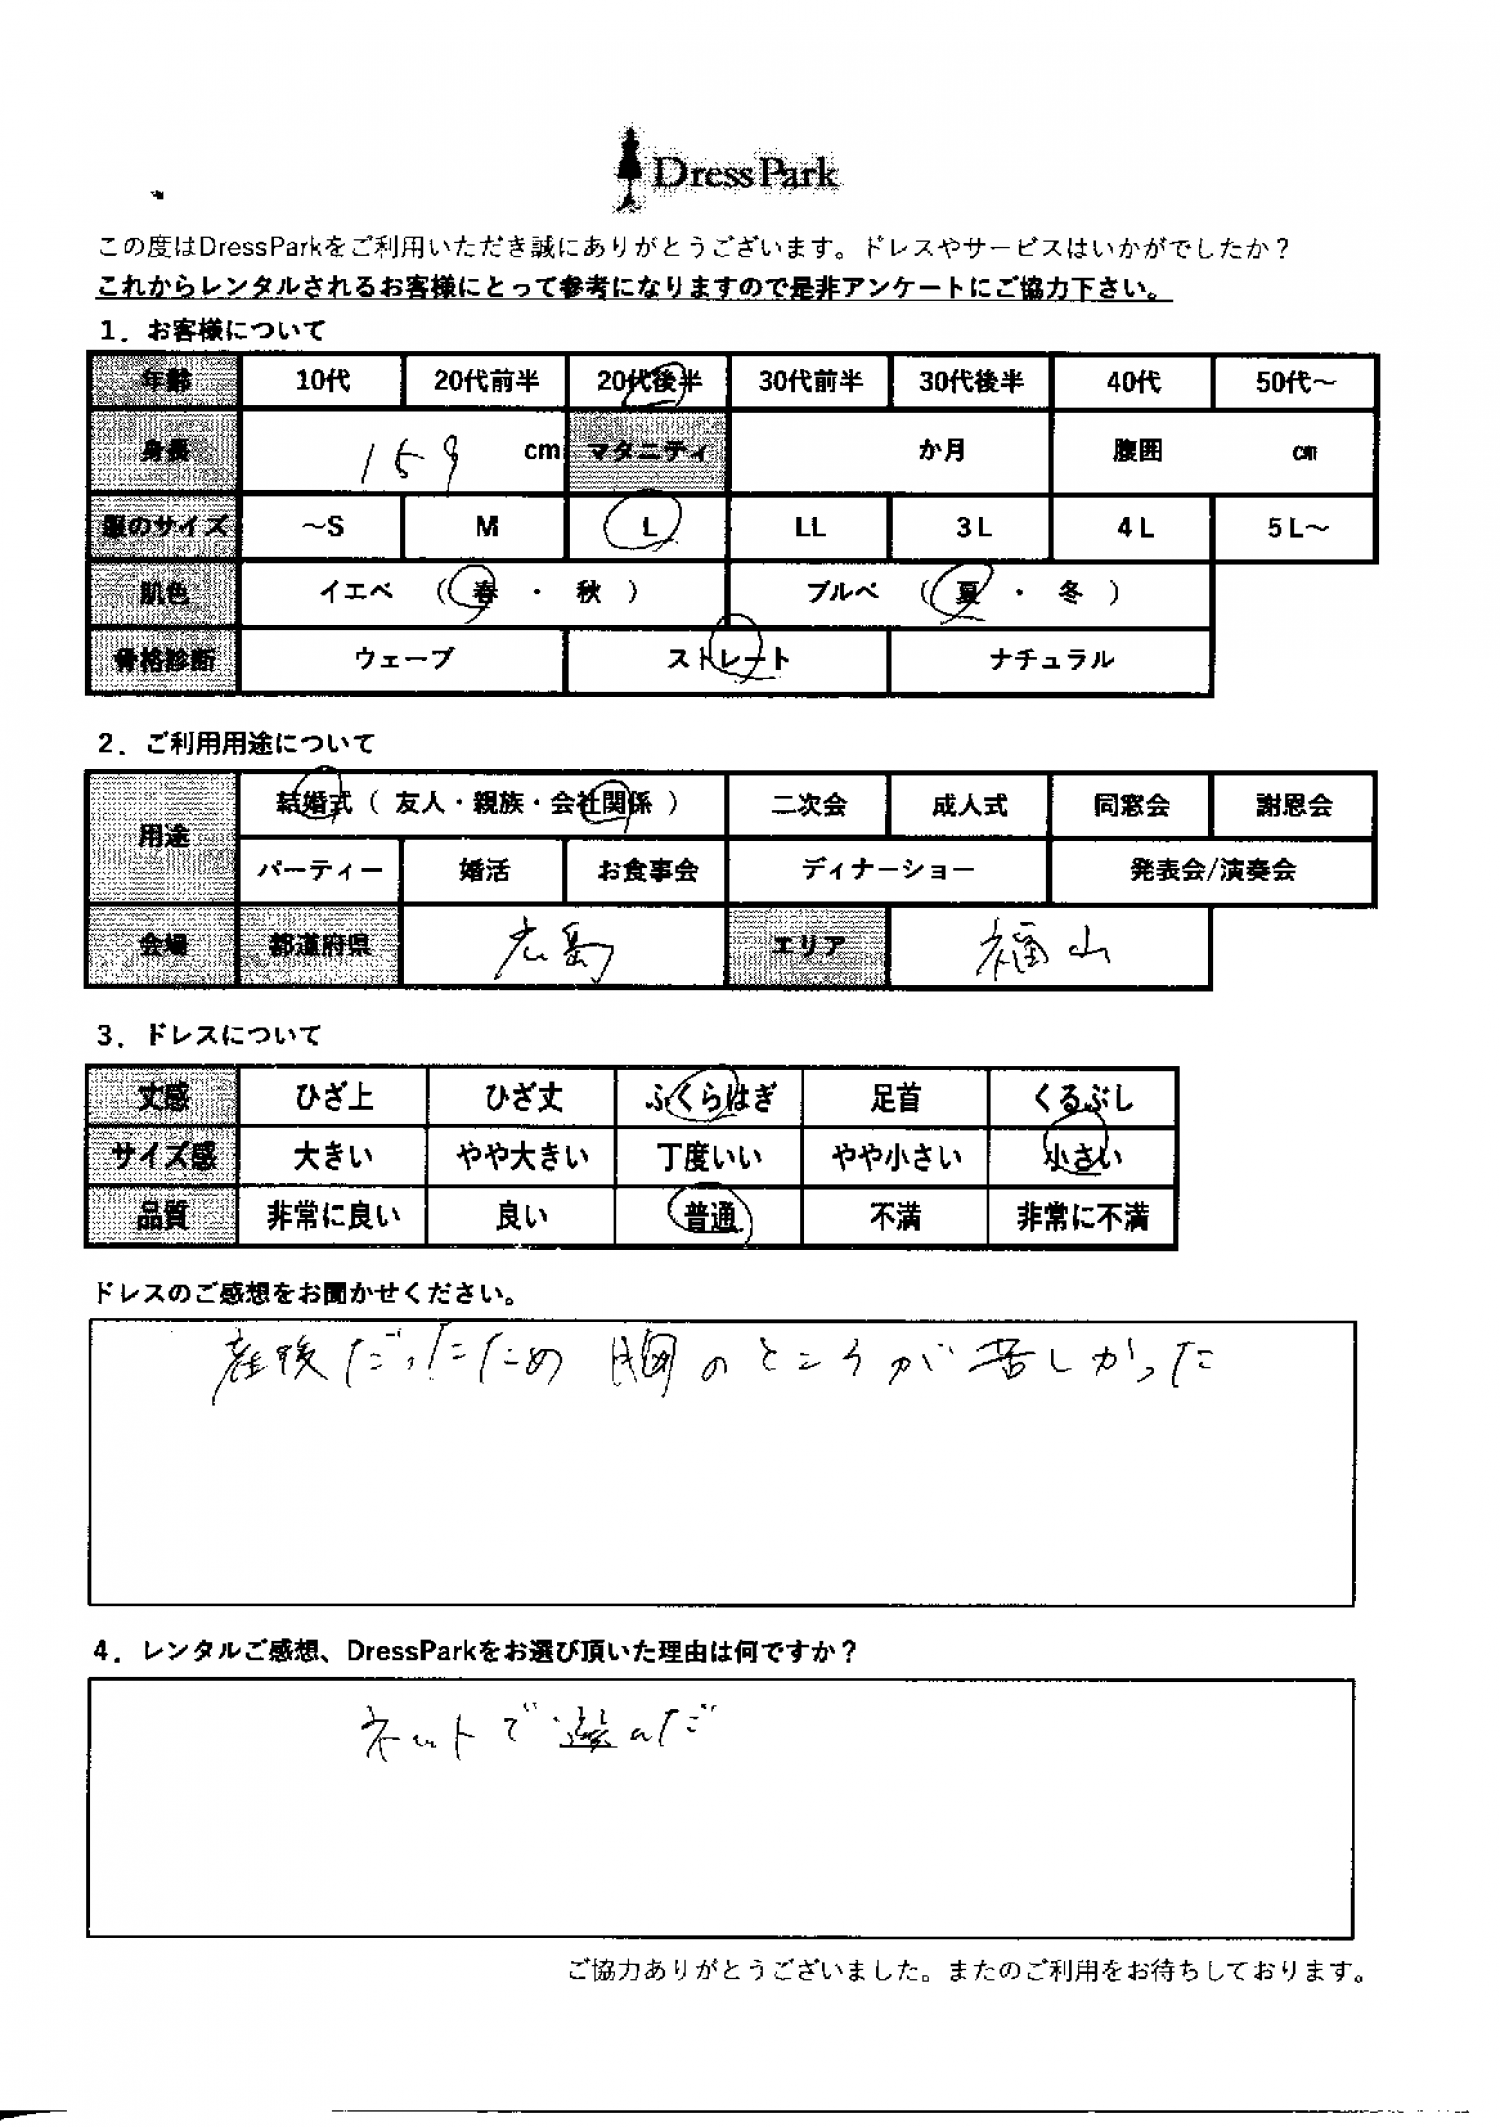 DressPark
この度はDressParkをご利用いただき誠にありがとうございます。ドレスやサービスはいかがでしたか？
これからレンタルされるお客様にとって参考になりますので是非アンケートにご協力下さい。
1．お客様について
年齢 10代 20代前半 20代後半 30代前半 30代後半 40代 50代～
身長 159 cm マタニティ か月 腹囲 cm
服のサイズ ～S M L LL 3L 4L 5L～
肌色 イエベ （ 春 ・ 秋 ） ブルベ （ 夏 ・ 冬 ）
骨格診断 ウェーブ ストレート ナチュラル
2．ご利用用途について
用途 結婚式（ 友人・親族・会社関係 ） 二次会 成人式 同窓会 謝恩会
パーティー 婚活 お食事会 ディナーショー 発表会/演奏会
会場 都道府県 広島 エリア 福山
3．ドレスについて
丈感 ひざ上 ひざ丈 ふくらはぎ 足首 くるぶし
サイズ感 大きい やや大きい 丁度いい やや小さい 小さい
品質 非常に良い 良い 普通 不満 非常に不満
ドレスのご感想をお聞かせください。
産後だったため 胸のところが苦しかった
4．レンタルご感想、DressParkをお選び頂いた理由は何ですか？
ネットで選んだ
ご協力ありがとうございました。またのご利用をお待ちしております。